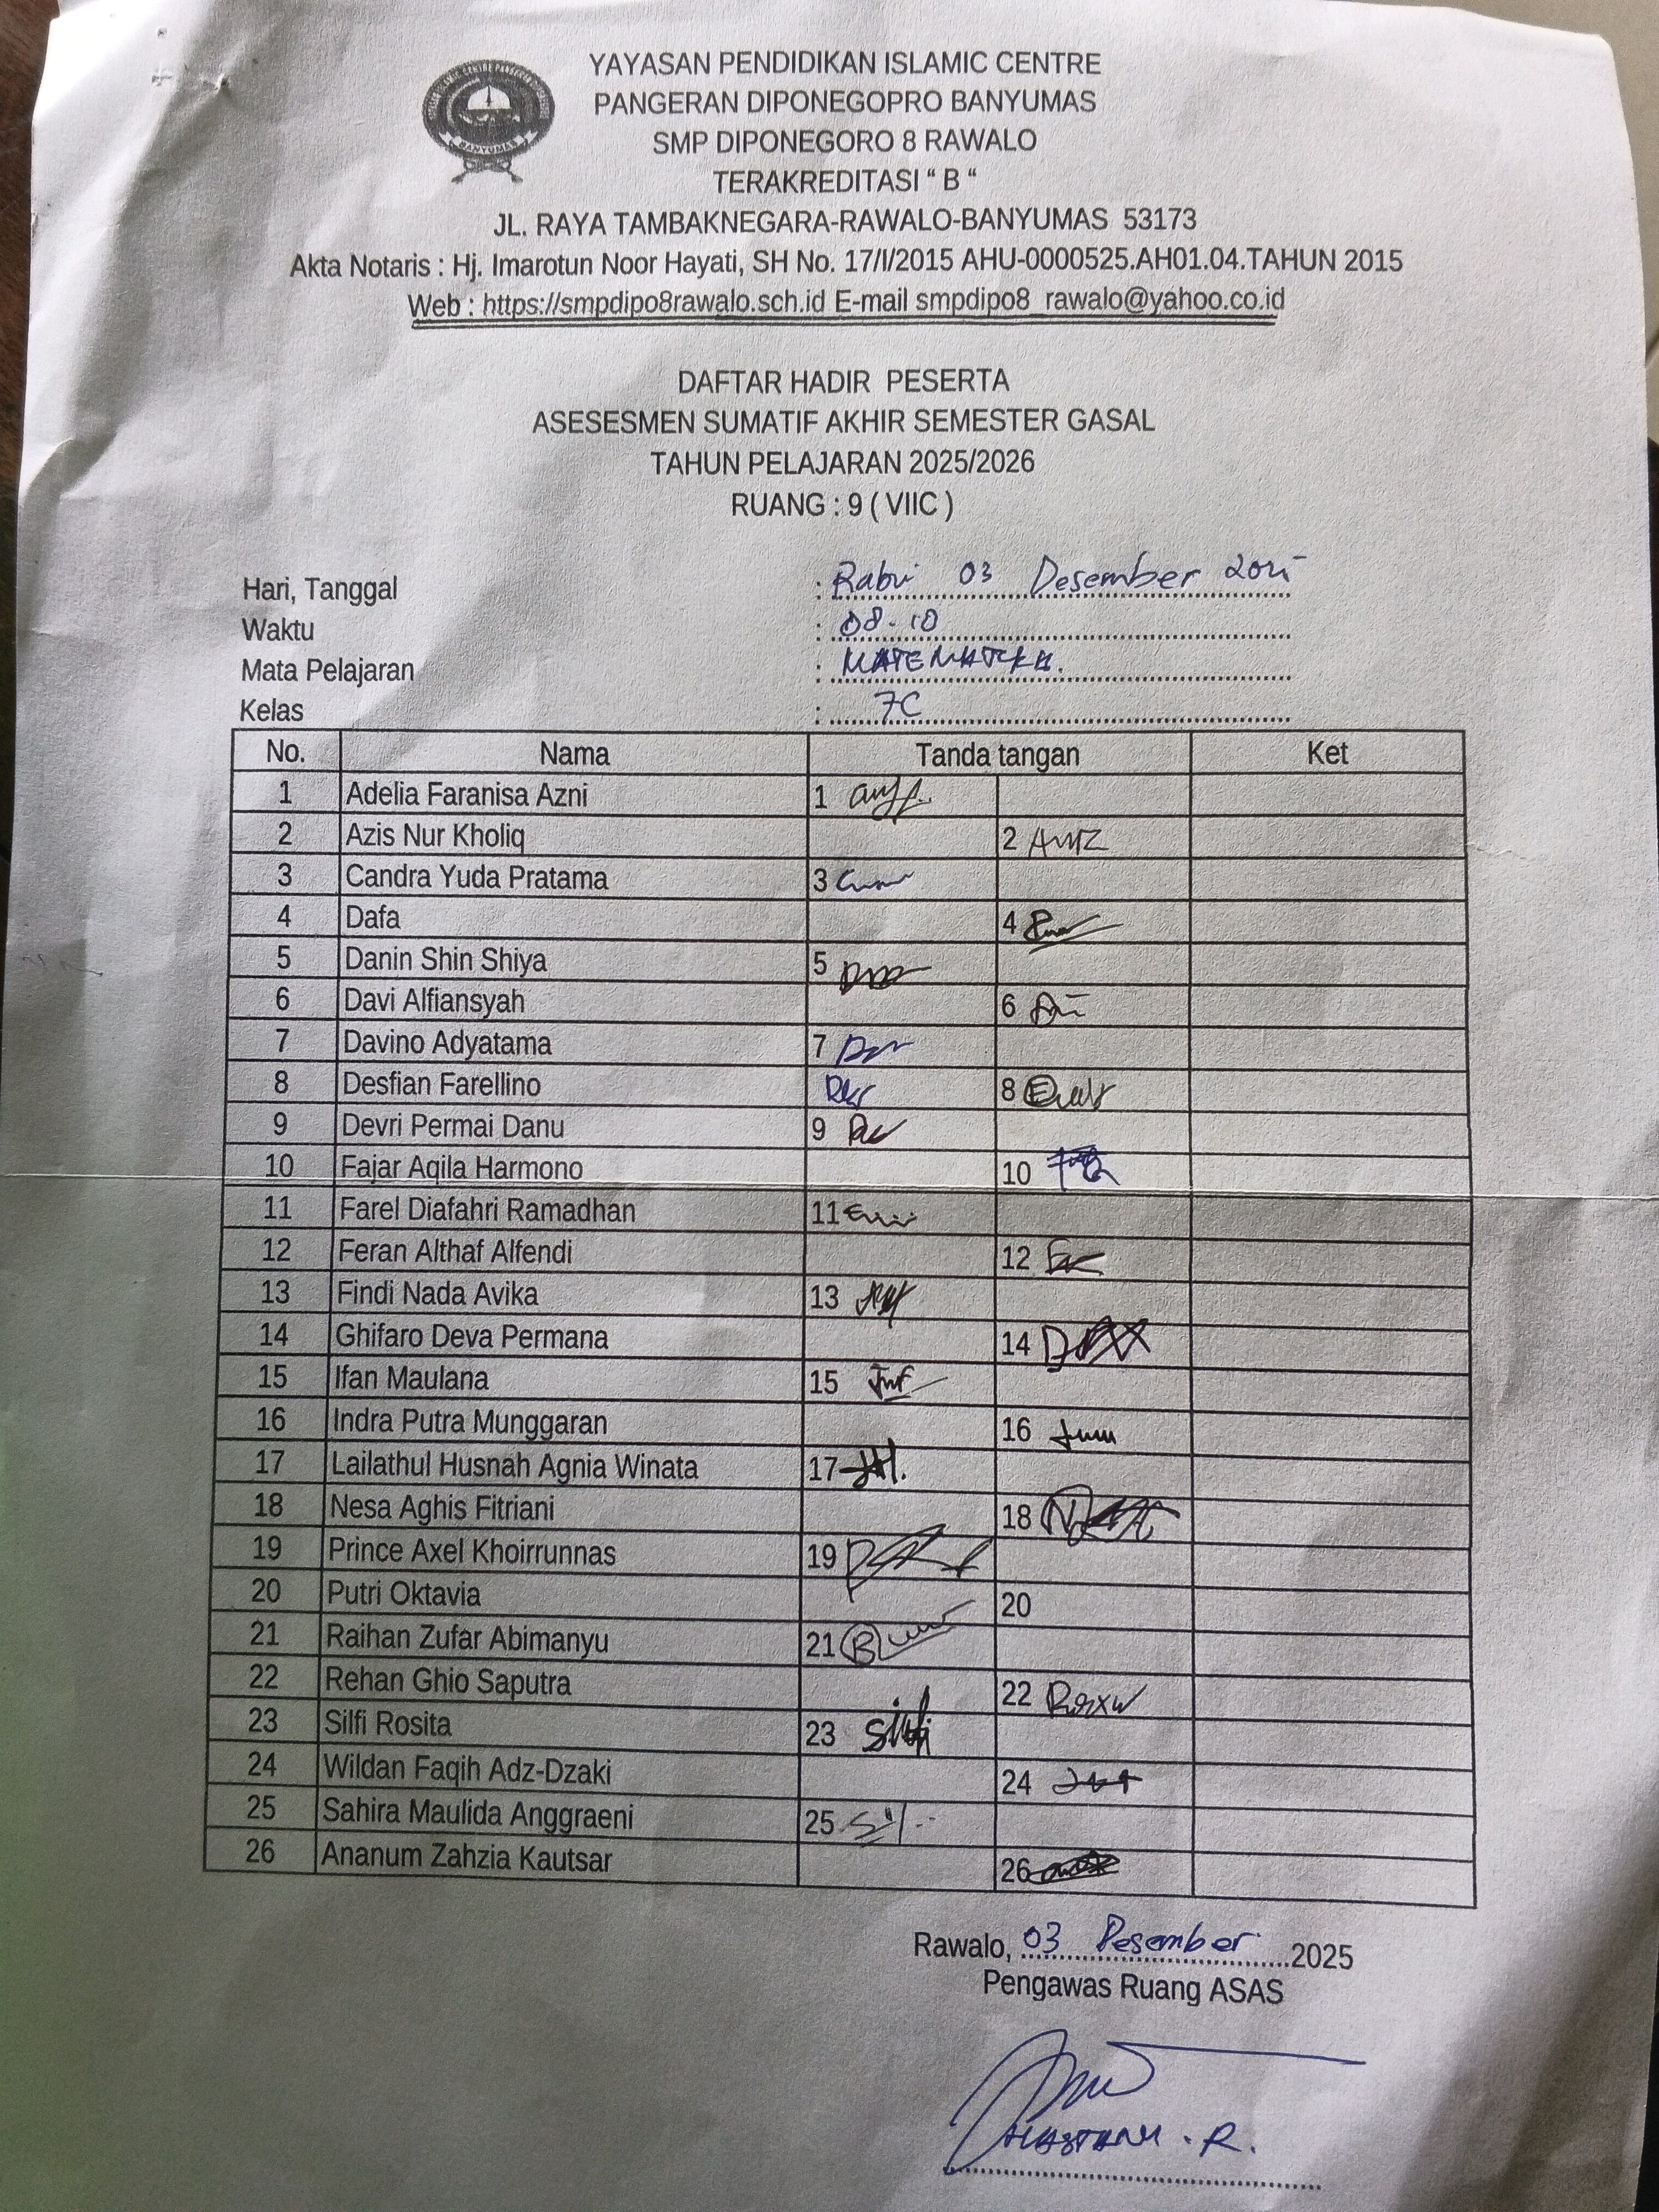 YAYASAN PENDIDIKAN ISLAMIC CENTRE
PANGERAN DIPONEGOPRO BANYUMAS
SMP DIPONEGORO 8 RAWALO
TERAKREDITASI “ B “
JL. RAYA TAMBAKNEGARA-RAWALO-BANYUMAS 53173
Akta Notaris : Hj. Imarotun Noor Hayati, SH No. 17/I/2015 AHU-0000525.AH01.04.TAHUN 2015
Web : https://smpdipo8rawalo.sch.id E-mail smpdipo8_rawalo@yahoo.co.id
BANYUMAS
DAFTAR HADIR PESERTA
ASESESMEN SUMATIF AKHIR SEMESTER GASAL
TAHUN PELAJARAN 2025/2026
RUANG : 9 ( VIIC )
Hari, Tanggal : Rabu 03 Desember 2025
Waktu : 08-10
Mata Pelajaran : MATEMATIKA.
Kelas : 7C
No. Nama Tanda tangan Ket
1 Adelia Faranisa Azni 1
2 Azis Nur Kholiq 2
3 Candra Yuda Pratama 3
4 Dafa 4
5 Danin Shin Shiya 5
6 Davi Alfiansyah 6
7 Davino Adyatama 7
8 Desfian Farellino 8
9 Devri Permai Danu 9
10 Fajar Aqila Harmono 10
11 Farel Diafahri Ramadhan 11
12 Feran Althaf Alfendi 12
13 Findi Nada Avika 13
14 Ghifaro Deva Permana 14
15 Ifan Maulana 15
16 Indra Putra Munggaran 16
17 Lailathul Husnah Agnia Winata 17
18 Nesa Aghis Fitriani 18
19 Prince Axel Khoirrunnas 19
20 Putri Oktavia 20
21 Raihan Zufar Abimanyu 21
22 Rehan Ghio Saputra 22
23 Silfi Rosita 23 Silfi
24 Wildan Faqih Adz-Dzaki 24
25 Sahira Maulida Anggraeni 25
26 Ananum Zahzia Kautsar 26
Rawalo, 03 Desember 2025
Pengawas Ruang ASAS
R.